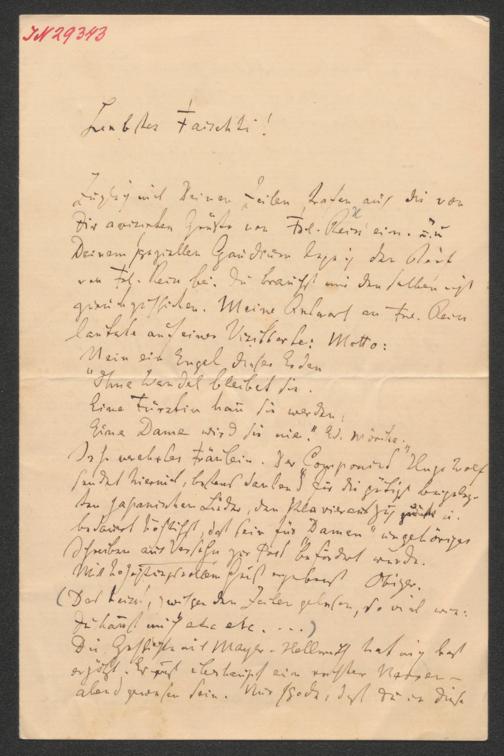 IN 29343
Liebster Faischti!
Zugleich mit Deinen Zeilen trafen auch die von
Dir avisirten Grüße von Frl. Reiss ein. Zu
Deinem speziellen Gaudium lege ich den Brief
von Frl. Reiss bei. Du brauchst mir denselben nicht
zurückzuschicken. Meine Antwort an Frl. Reiss
lautete auf einer Visitkarte: Motto:
Nein ein Engel dieser Erden
"Ohne Wandel bleibet sie.
Eine Fürstin kann sie werden,
Eine Dame wird sie nie." Ed. Mörike.
verehrtes Fräulein. Der Componist "Hugo Wolf"
sendet hiermit, bestens dankend für die gütigst
ten japanischen Lieder, den Klavierauszug zurück u.
bedauert höflichst, daß sein für "Damen" ungehöriges
Schreiben aus Versehn zur Post befördert wurde.
Mit hochachtungsvollem Gruß ergebenst Obiger.
(Das heißt, zwischen den Zeilen gelesen, so viel wie:
etc etc. ...)
Die Geschichte mit Mayer-Hellmuth hat mich
ergötzt. Es muß überhaupt ein rechter Narren-
abend gewesen sein. Nur schade, daß Du in diese